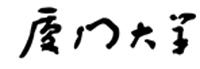 厦门大学